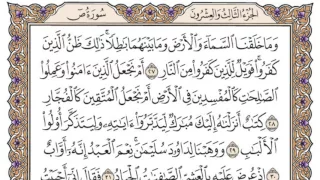 الجزء الثالث والعشرون سورة ص
وَمَا خَلَقْنَا ٱلسَّمَآءَ وَٱلْأَرْضَ وَمَا بَيْنَهُمَا بَٰطِلًا ۚ ذَٰلِكَ ظَنُّ ٱلَّذِينَ
كَفَرُوا۟ ۚ فَوَيْلٌ لِّلَّذِينَ كَفَرُوا۟ مِنَ ٱلنَّارِ ٢٧ أَمْ نَجْعَلُ ٱلَّذِينَ ءَامَنُوا۟ وَعَمِلُوا۟
ٱلصَّٰلِحَٰتِ كَٱلْمُفْسِدِينَ فِى ٱلْأَرْضِ أَمْ نَجْعَلُ ٱلْمُتَّقِينَ كَٱلْفُجَّارِ
٢٨ كِتَٰبٌ أَنزَلْنَٰهُ إِلَيْكَ مُبَٰرَكٌ لِّيَدَّبَّرُوٓا۟ ءَايَٰتِهِۦ وَلِيَتَذَكَّرَ أُو۟لُوا۟
ٱلْأَلْبَٰبِ ٢٩ وَوَهَبْنَا لِدَاوُۥدَ سُلَيْمَٰنَ ۚ نِعْمَ ٱلْعَبْدُ ۖ إِنَّهُۥٓ أَوَّابٌ
٣٠ إِذْ عُرِضَ عَلَيْهِ بِٱلْعَشِىِّ ٱلصَّٰفِنَٰتُ ٱلْجِيَادُ ٣١ فَقَالَ إِنِّىٓ أَحْبَبْتُ